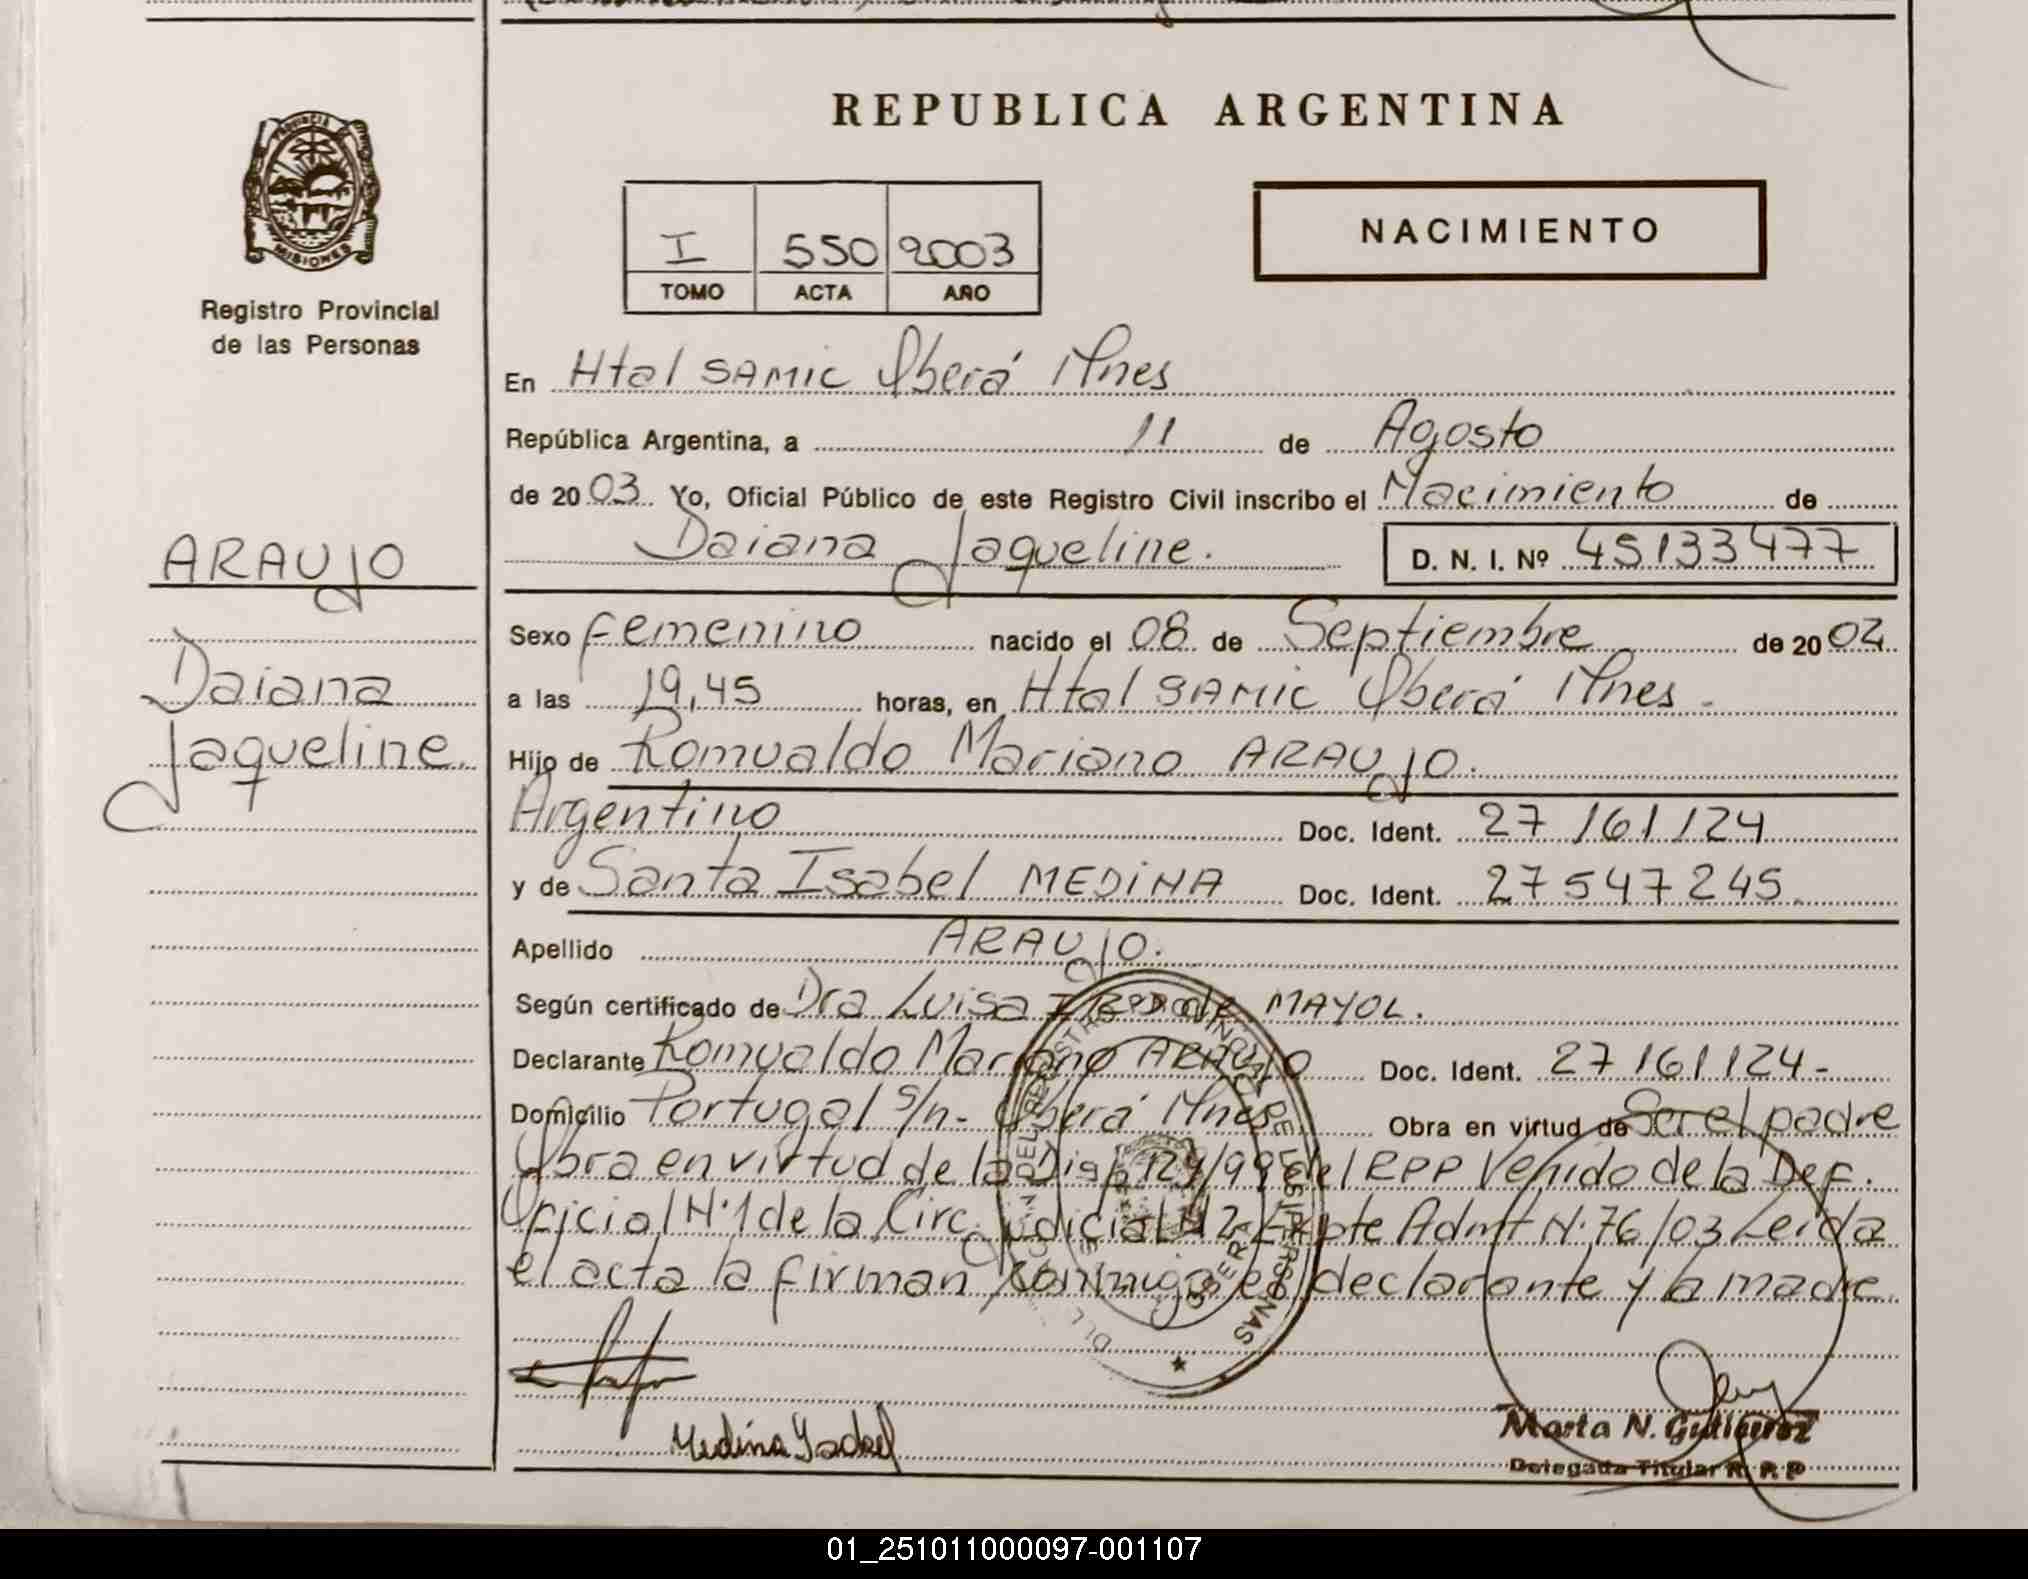 REPUBLICA ARGENTINA
PROVINCIA
MISIONES
Registro Provincial
de las Personas
I 550 2003
TOMO ACTA AÑO
NACIMIENTO
En Htal SAMIC Oberá Mnes
República Argentina, a 11 de Agosto
de 2003 Yo, Oficial Público de este Registro Civil inscribo el Nacimiento de
Daiana Jaqueline. D. N. I. Nº 45133477
ARAUJO
Daiana
Jaqueline.
Sexo femenino nacido el 08 de Septiembre de 2002
a las 19,45 horas, en Htal SAMIC Oberá Mnes.
Hijo de Romualdo Mariano ARAUJO.
Argentino Doc. Ident. 27 161 124
y de Santa Isabel MEDINA Doc. Ident. 27 547 245.
Apellido ARAUJO.
Según certificado de Dra Luisa de MAYOL.
Declarante Romualdo Mariano ARAUJO Doc. Ident. 27 161 124-
Domicilio Portugal s/n- Oberá Mnes Obra en virtud de Ser el padre
Obra en virtud de la Disp 129/99 del RPP Venido de la Def.
Oficial N·1 de la Circ. Judicial N 2 Expte Admt N·76/03 Leida
el acta la firman conmigo el declarante y la madre.
DEL REGISTRO PROVINCIAL DE LAS PERSONAS
OBERA
Medina Isabel
Marta N. Gutierrez
Delegada Titular R. P. P
01_251011000097-001107